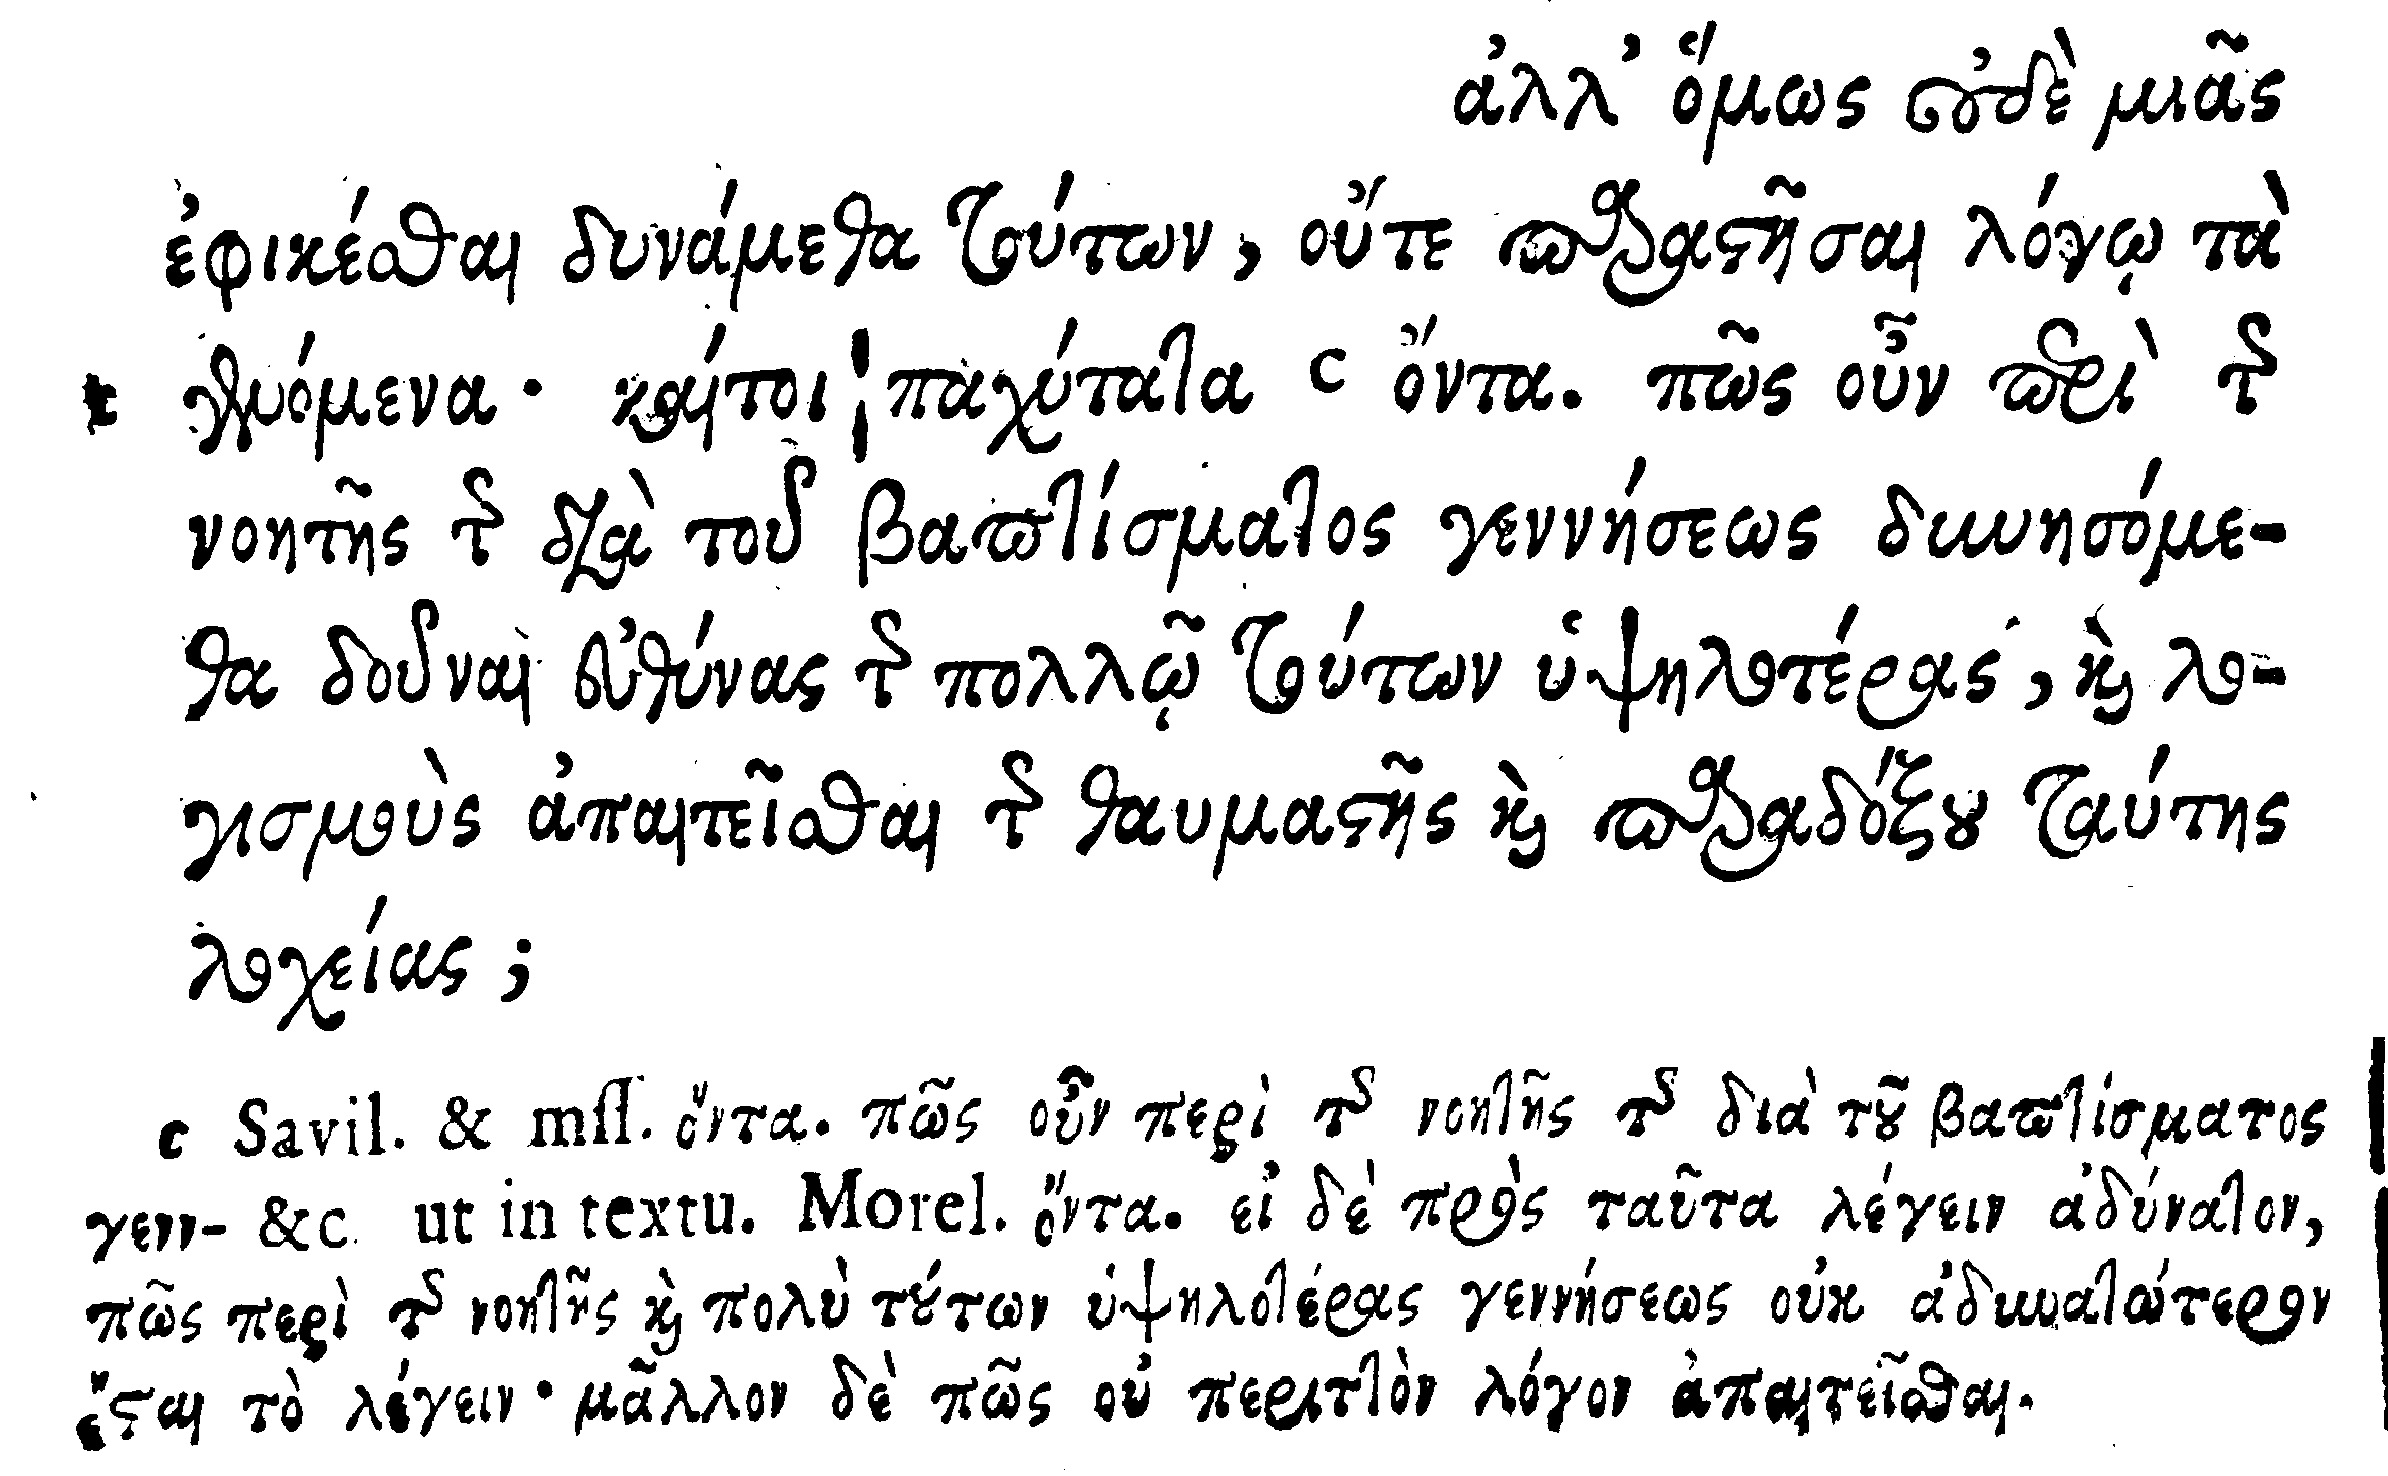 ἀλλ' ὅμως οὐδὲ μιᾶς
ἐφικέσθαι δυνάμεθα τούτων, οὔτε παραστῆσαι λόγῳ τὰ
c γινόμενα· καίτοι παχύτατα c ὄντα. πῶς οὖν περὶ τῆς
νοητῆς τῆς διὰ τοῦ βαπτίσματος γεννήσεως δυνησόμε-
θα δοῦναι εὐθύνας τῆς πολλῷ τούτων ὑψηλοτέρας, καὶ λο-
γισμοὺς ἀπαιτεῖσθαι τῆς θαυμαστῆς καὶ παραδόξου ταύτης
λοχείας;
c Savil. & mſſ. ὄντα. πῶς οὖν περὶ τῆς νοητῆς τῆς διὰ τοῦ βαπτίσματος
γενν- &c. ut in textu. Morel. ὄντα. εἰ δὲ πρὸς ταῦτα λέγειν ἀδύνατον,
πῶς περὶ τῆς νοητῆς καὶ πολὺ τούτων ὑψηλοτέρας γεννήσεως οὐκ ἀδυνατώτερον
ἔσται τὸ λέγειν· μᾶλλον δὲ πῶς οὐ περιττὸν λόγον ἀπαιτεῖσθαι.